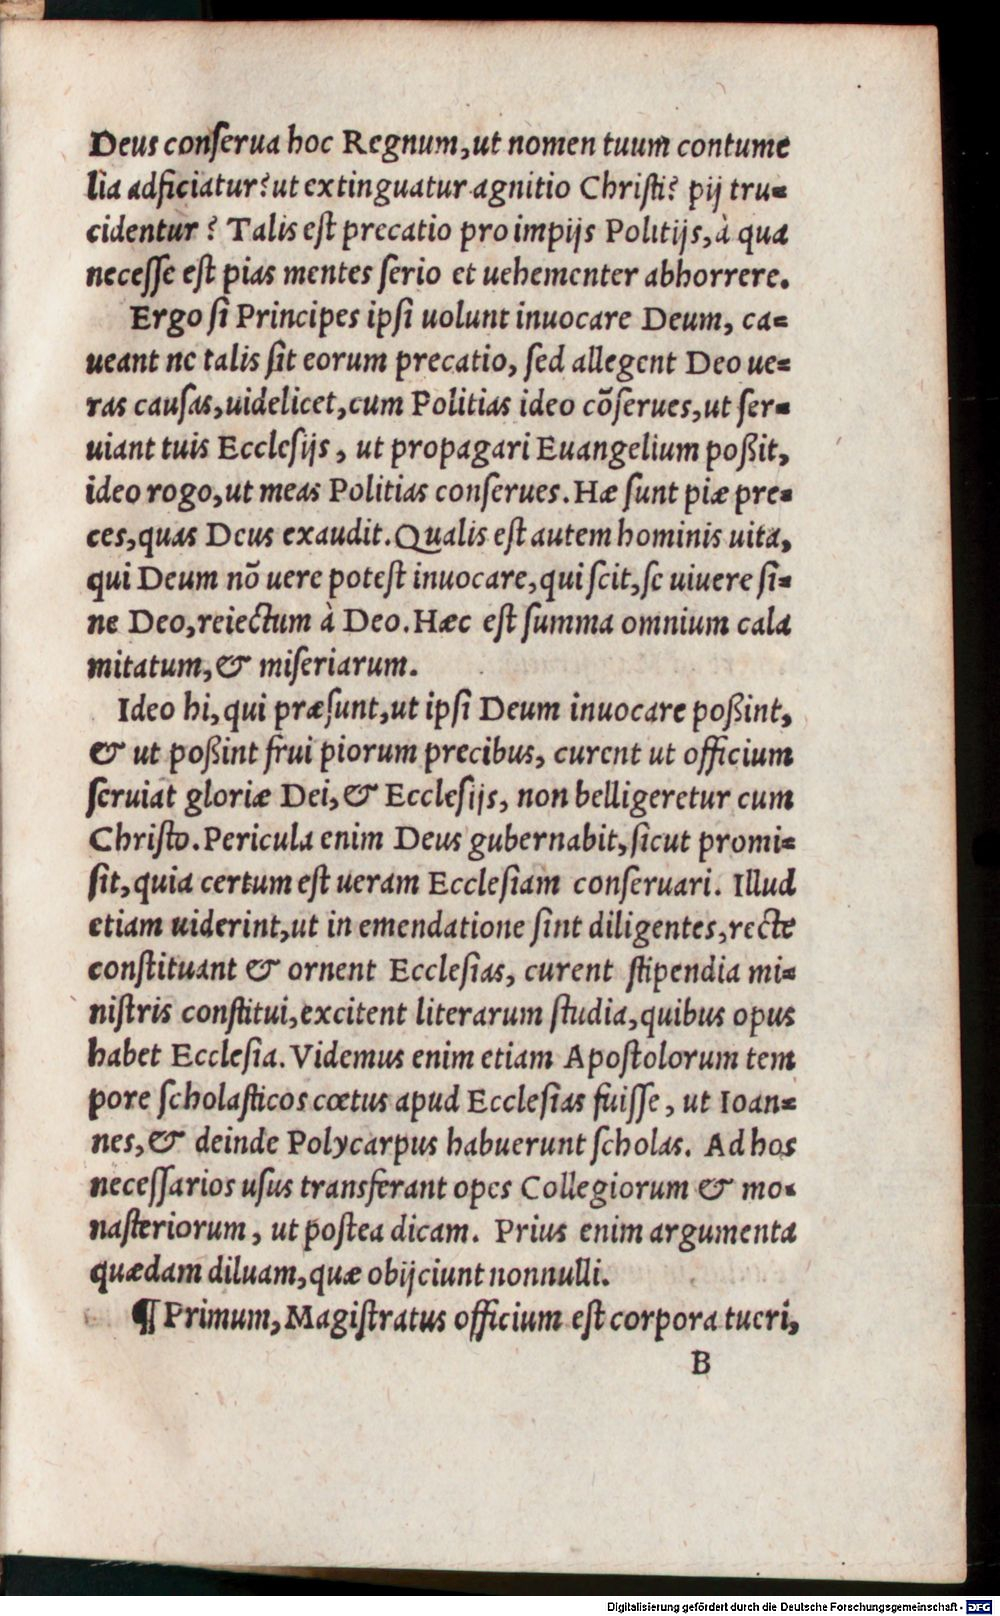 Deus conſerua hoc Regnum,ut nomen tuum contume
lia adficiatur?ut extinguatur agnitio Chriſti? pij tru-
cidentur? Talis eſt precatio pro impijs Politijs,à qua
neceſſe eſt pias mentes ſerio et uehementer abhorrere.
Ergo ſi Principes ipſi uolunt inuocare Deum, ca-
ueant ne talis ſit eorum precatio, ſed allegent Deo ue-
ras cauſas,uidelicet,cum Politias ideo cõſerues,ut ſer-
uiant tuis Eccleſijs, ut propagari Euangelium poßit,
ideo rogo,ut meas Politias conſerues.Hæ ſunt piæ pre-
ces,quas Deus exaudit.Qualis eſt autem hominis uita,
qui Deum nõ uere poteſt inuocare,qui ſcit,ſe uiuere ſi-
ne Deo,reiectum à Deo.Hæc eſt ſumma omnium cala
mitatum,& miſeriarum.
Ideo hi,qui præſunt,ut ipſi Deum inuocare poßint,
& ut poßint frui piorum precibus, curent ut officium
ſeruiat gloriæ Dei,& Eccleſijs, non belligeretur cum
Chriſto.Pericula enim Deus gubernabit,ſicut promi-
ſit,quia certum eſt ueram Eccleſiam conſeruari. Illud
etiam uiderint,ut in emendatione ſint diligentes,recte
conſtituant & ornent Eccleſias, curent ſtipendia mi-
niſtris conſtitui,excitent literarum ſtudia,quibus opus
habet Eccleſia.Videmus enim etiam Apoſtolorum tem
pore ſcholaſticos cœtus apud Eccleſias fuiſſe, ut Ioan-
nes,& deinde Polycarpus habuerunt ſcholas. Ad hos
neceſſarios uſus transferant opes Collegiorum & mo-
naſteriorum, ut poſtea dicam. Prius enim argumenta
quædam diluam,quæ obijciunt nonnulli.
¶ Primum,Magiſtratus officium eſt corpora tueri,
B
Digitalisierung gefördert durch die Deutsche Forschungsgemeinschaft - DFG